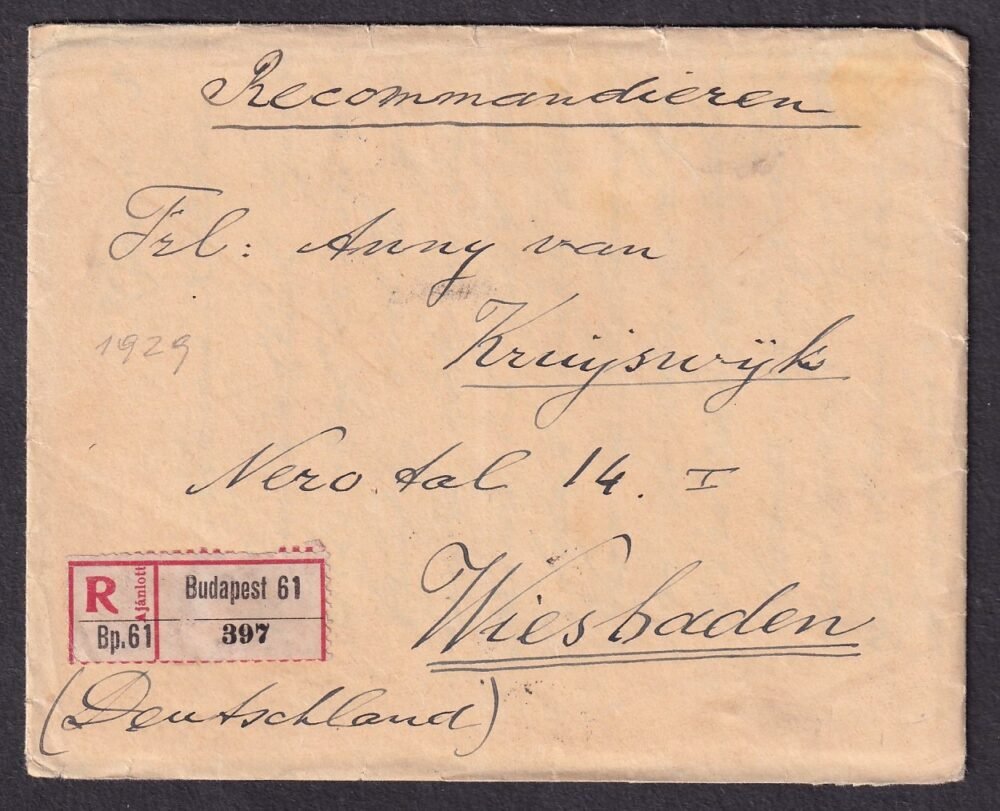 Recommandieren
Frl: Anny van
Kruijswijk
1929
Nerotal 14. I
Wiesbaden
(Deutschland)
R Ajánlott Budapest 61
Bp.61 397